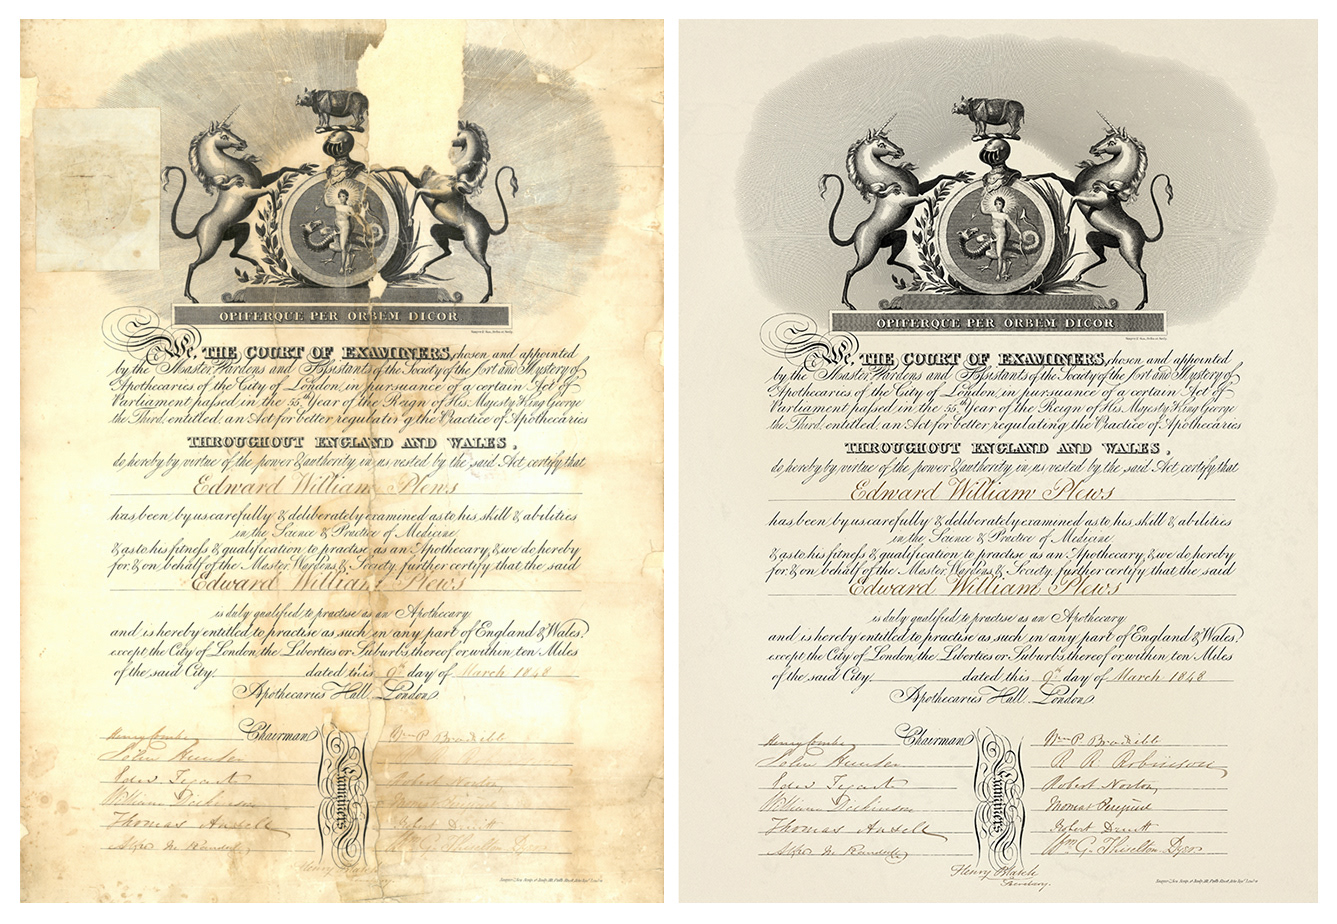 OPIFERQUE PER ORBEM DICOR
We, THE COURT OF EXAMINERS, chosen and appointed
by the Master, Wardens and Assistants of the Society of the Art and Mystery of
Apothecaries of the City of London, in pursuance of a certain Act of
Parliament passed in the 55th Year of the Reign of His Majesty King George
the Third, entitled, an Act for better regulating the Practice of Apothecaries
THROUGHOUT ENGLAND AND WALES,
do hereby by virtue of the power & authority in us vested by the said Act, certify that
Edward William Plews
has been by us carefully & deliberately examined as to his skill & abilities
in the Science & Practice of Medicine
& as to his fitness & qualification to practise as an Apothecary, & we do hereby
for & on behalf of the Master, Wardens & Society, further certify that the said
Edward William Plews
is duly qualified to practise as an Apothecary
and is hereby entitled to practise as such in any part of England & Wales,
except the City of London, the Liberties or Suburbs thereof or within ten Miles
of the said City, dated this 9th day of March 1848
Apothecaries Hall, London
Henry Combe Chairman
John Hunter
William Dickinson Robert Norton
Thomas Ansell Robert Druitt
Examiners
Henry Blatch
Secretary
OPIFERQUE PER ORBEM DICOR
We, THE COURT OF EXAMINERS, chosen and appointed
by the Master, Wardens and Assistants of the Society of the Art and Mystery of
Apothecaries of the City of London, in pursuance of a certain Act of
Parliament passed in the 55th Year of the Reign of His Majesty King George
the Third, entitled, an Act for better regulating the Practice of Apothecaries
THROUGHOUT ENGLAND AND WALES,
do hereby by virtue of the power & authority in us vested by the said Act, certify that
Edward William Plews
has been by us carefully & deliberately examined as to his skill & abilities
in the Science & Practice of Medicine
& as to his fitness & qualification to practise as an Apothecary, & we do hereby
for & on behalf of the Master, Wardens & Society, further certify that the said
Edward William Plews
is duly qualified to practise as an Apothecary
and is hereby entitled to practise as such in any part of England & Wales,
except the City of London, the Liberties or Suburbs thereof or within ten Miles
of the said City, dated this 9th day of March 1848
Apothecaries Hall, London
Henry Combe Chairman
John Hunter R R Robinson
Robert Norton
William Dickinson
Thomas Ansell Robert Druitt
Wm. G. Thiselton Dyer
Examiners
Henry Blatch
Secretary